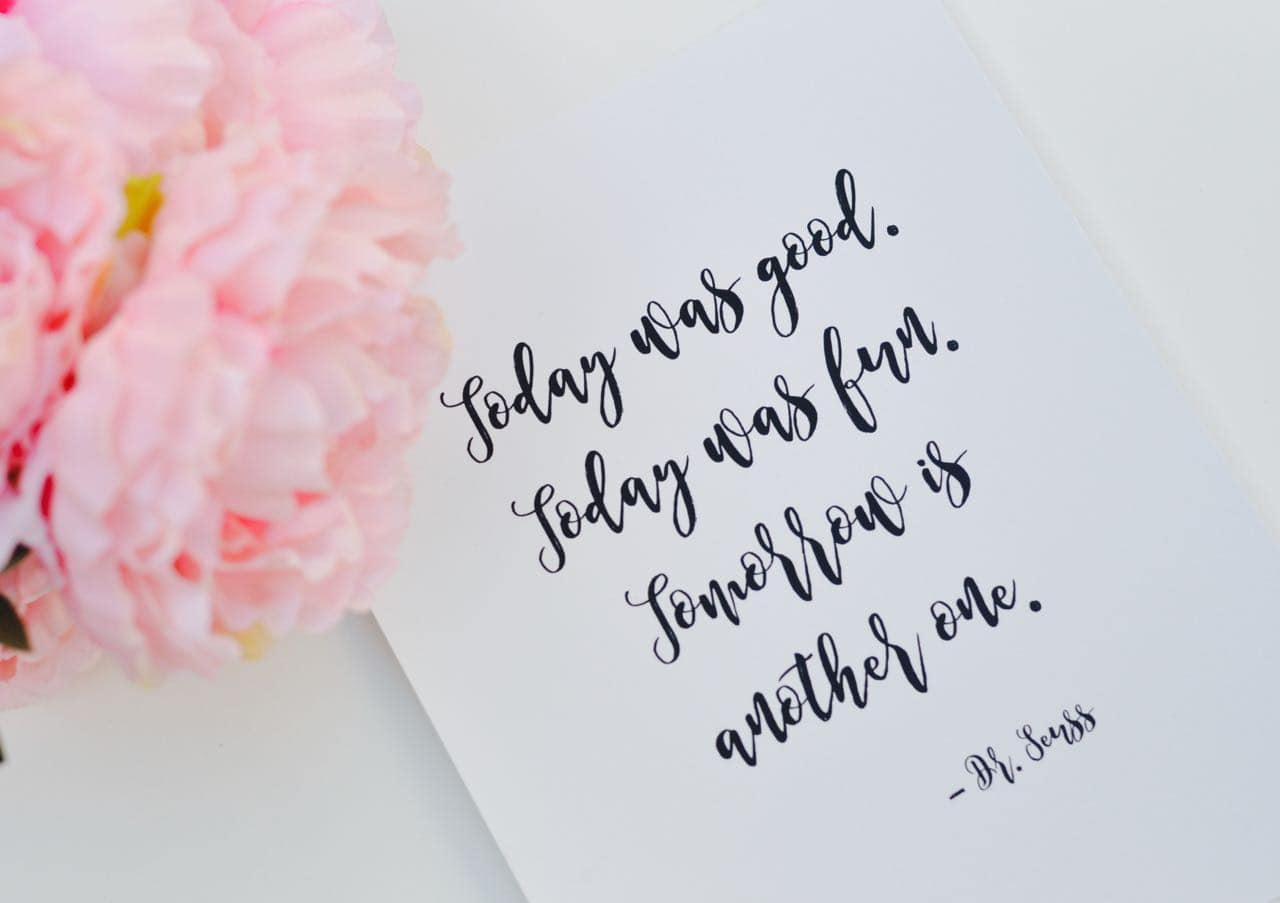 Today was good.
Today was fun.
Tomorrow is
another one.
- Dr. Seuss